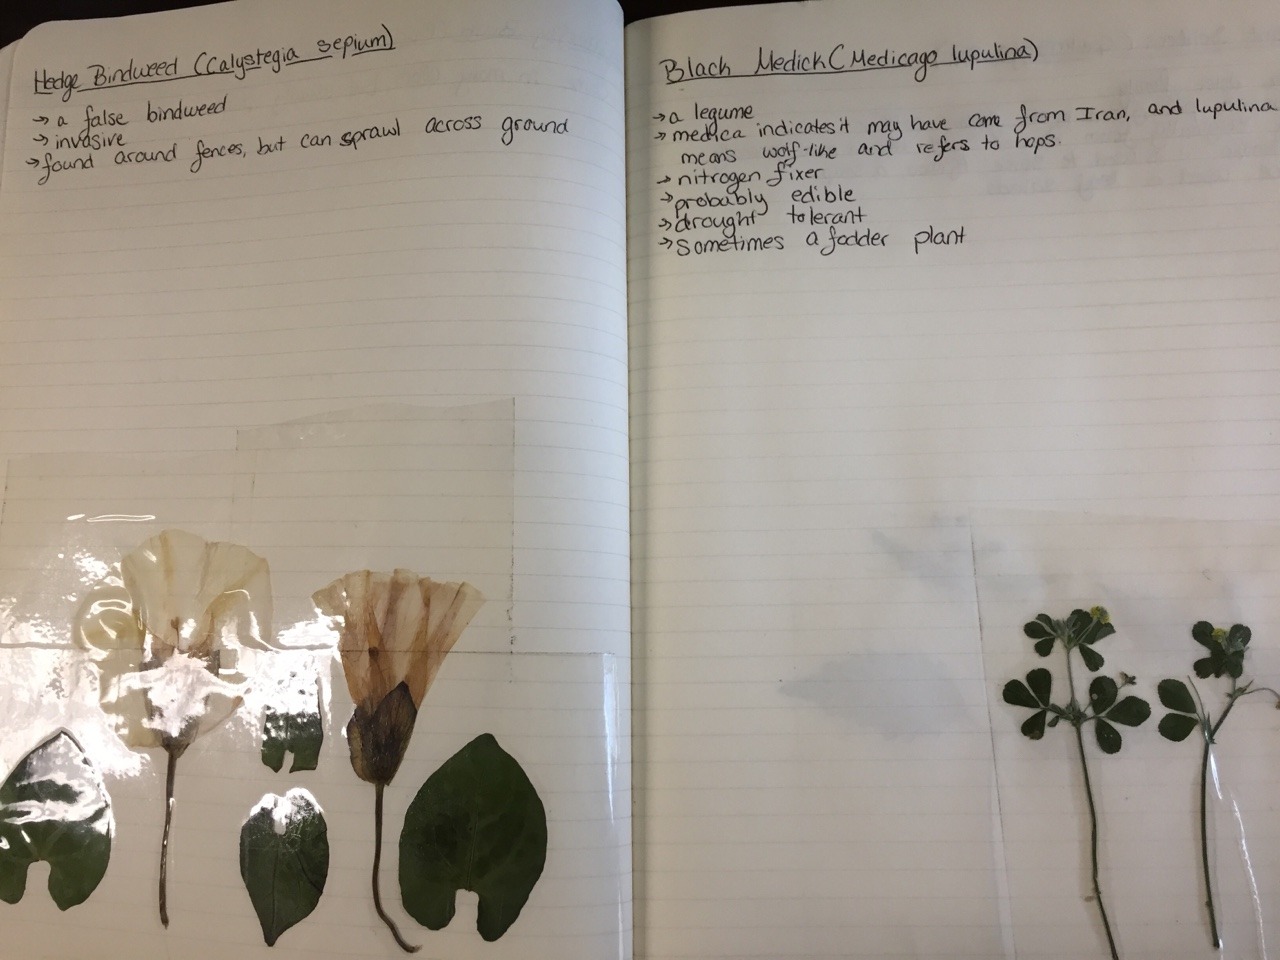 Hedge Bindweed (Calystegia sepium)
→ a false bindweed
→ invasive
→ found around fences, but can sprawl across ground
Black Medick (Medicago lupulina)
→ a legume
→ medica indicates it may have come from Iran, and lupulina
means wolf-like and refers to hops.
→ nitrogen fixer
→ probably edible
→ drought tolerant
→ sometimes a fodder plant